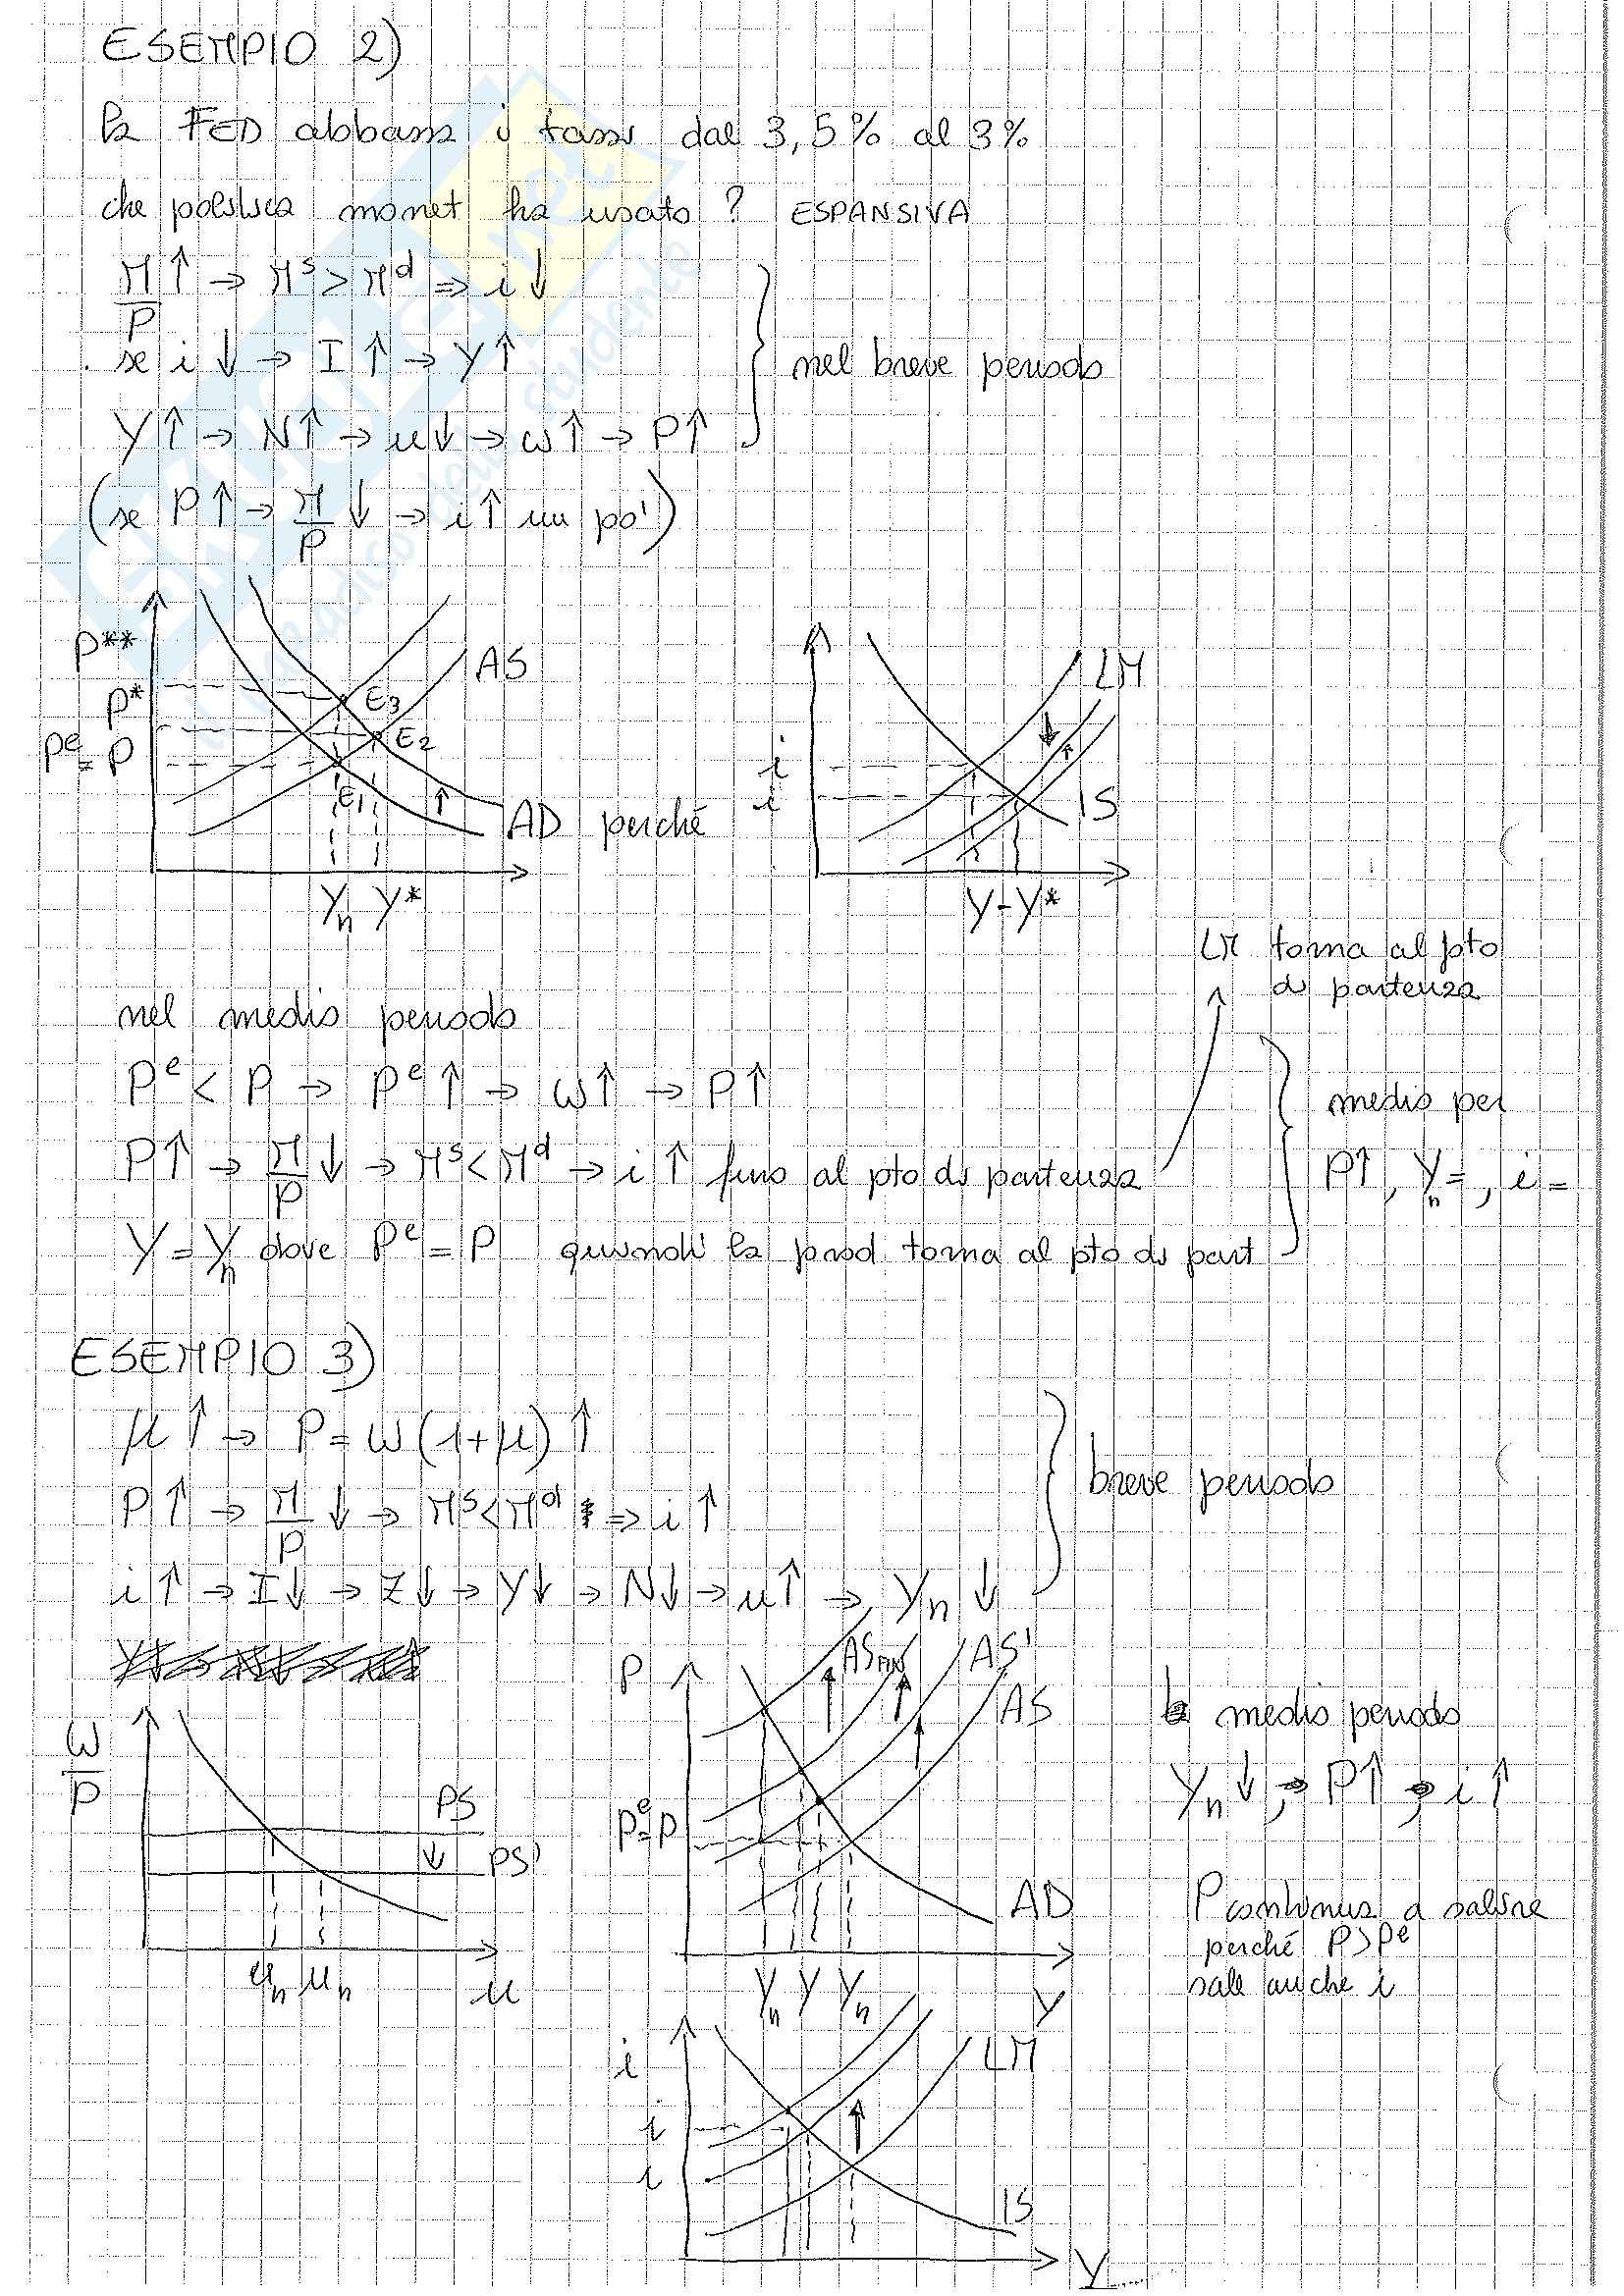 ESEMPIO 2)
la FED abbassa i tassi dal 3,5% al 3%
che politica monet ha usato? ESPANSIVA
M/P ↑ → Mˢ > Mᵈ ⇒ i ↓
se i ↓ → I ↑ → Y ↑
nel breve periodo
Y ↑ → N ↑ → u ↓ → w ↑ → P ↑
(se P ↑ → M/P ↓ → i ↑ un po')
P**
P*
Pᵉ = P
AS
E3
E2
E1
AD perché
Yn Y*
LM
i
i
IS
Y → Y*
LM torna al pto
di partenza
nel medio periodo
Pᵉ < P → Pᵉ ↑ → w ↑ → P ↑
medio per
P ↑ → M/P ↓ → Mˢ < Mᵈ → i ↑ fino al pto di partenza
P ↑, Yn =, i =
Y = Yn dove Pᵉ = P quindi la prod torna al pto di part
ESEMPIO 3)
μ ↑ → P = w(1+μ) ↑
breve periodo
P ↑ → M/P ↓ → Mˢ < Mᵈ ⇒ i ↑
i ↑ → I ↓ → Z ↓ → Y ↓ → N ↓ → u ↑ → Yn ↓
W/P
PS
PS'
un un
u
P
AS'
AS
Pᵉ = P
AD
Yn Y Yn
Y
medio periodo
Yn ↓, P ↑, i ↑
P continua a salire
perché P > Pᵉ
sale anche i
i
i
i
LM
IS
Y